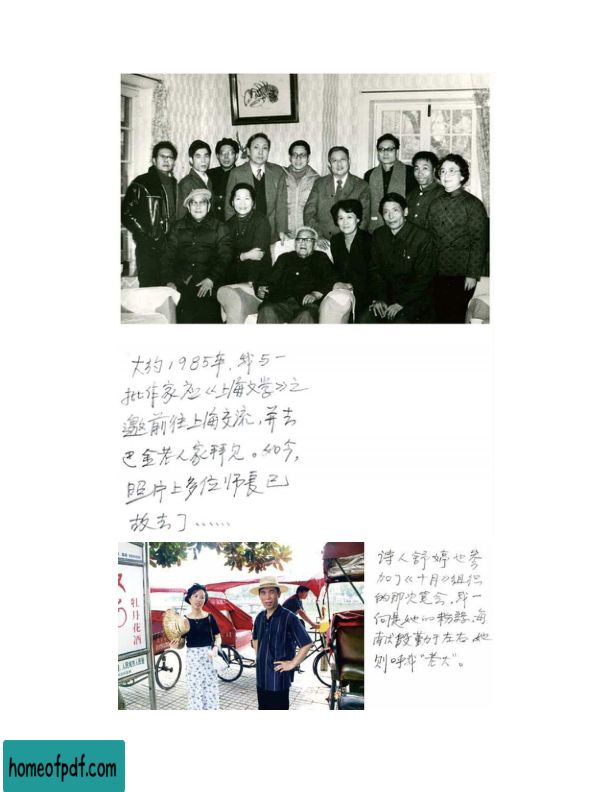 大约1985年,我与一
批作家应《上海文学》之
邀前往上海交流,并去
巴金老人家拜见。如今,
照片上多位师友已
故去了……
诗人舒婷也参
加了《十月》组织
的那次笔会,我一
向是她的粉丝,海
南
左右,她
则呼我"老大"。
牡丹花酒
homeofpdf.com